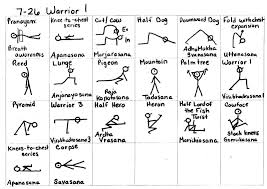 7-26 Warrior 1
Pranayam
Knee-to-chest series
Cat/Cow
Half Dog
Downward Dog
Fold with chest expansion
Breath awareness
Apanasana
Marjarasana
Adho Mukha Svanasana
Uttanasana
Reed
Lunge
Pigeon
Mountain
Palm tree
Anjanayasana
Eka Kapotasana
Tadasana
Pyramid
Warrior 3
Half Hero
Heron
Half Lord of the Fish Twist
Cowface
Virabhadrasana
Ardha Virasana
Knees-to-chest series
Corpse
Apanasana
Savasana